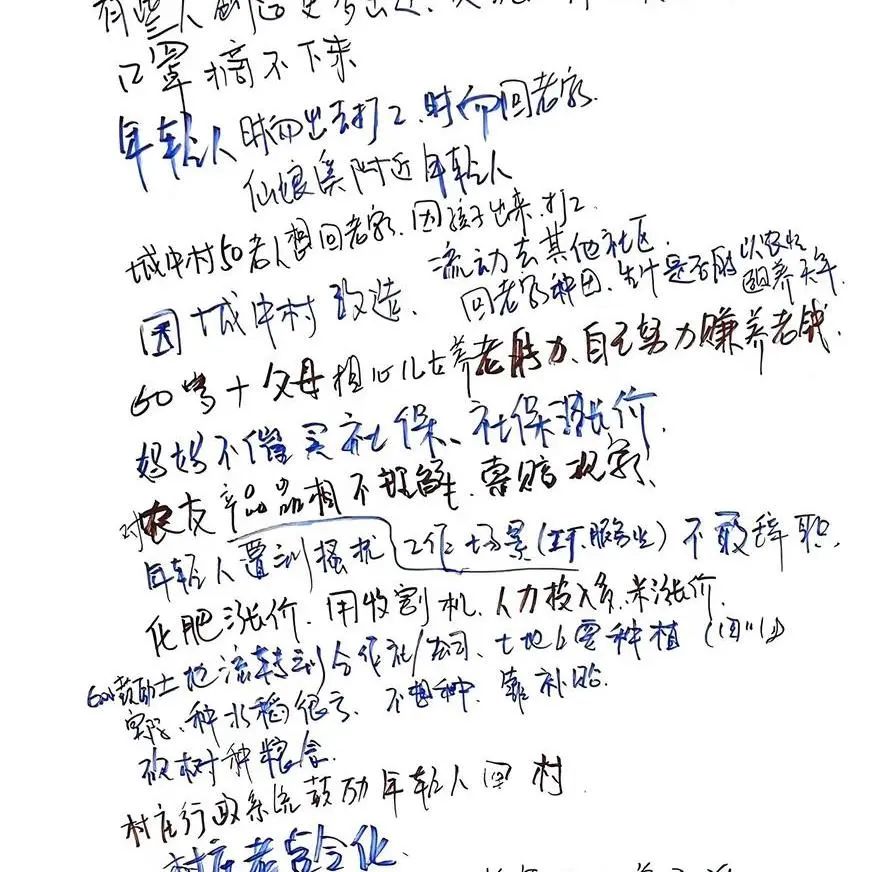 有些人
口罩摘不下来
年轻人 时而出去打工、时而回老家.
仙娘溪附近年轻人
城中村50老人想回老家. 因孩子出来.打工.
流动去其他社区.
因城中村改造.
回老家种田. 生计是否能以农业 养天年.
60岁+父母担心儿女养老能力、自己努力赚养老钱.
妈妈不催买社保、社保涨价.
对农友产品品相不理解.
年轻人遭到骚扰{工作场景(工厂.服务业) 不敢辞职.
化肥涨价. 用收割机. 人力投入多.米涨价.
鼓励土地流转到合作社/公司、土地上要种植
种水稻很亏、不想种、靠补贴.
砍树种粮食.
村庄行政系统鼓励年轻人回村
村庄老龄化.